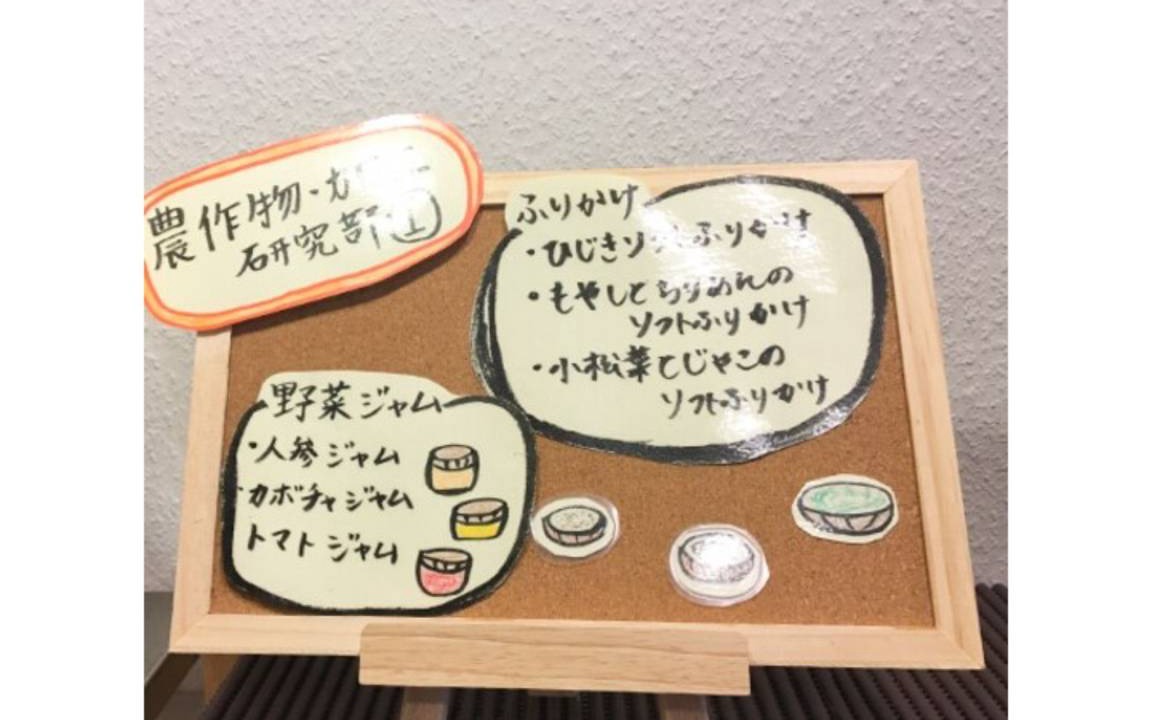 農作物・加工
研究部
ふりかけ
・ひじきソフトふりかけ
・もやしとちりめんの
ソフトふりかけ
・小松菜とじゃこの
ソフトふりかけ
野菜ジャム
・人参ジャム
・カボチャジャム
トマトジャム